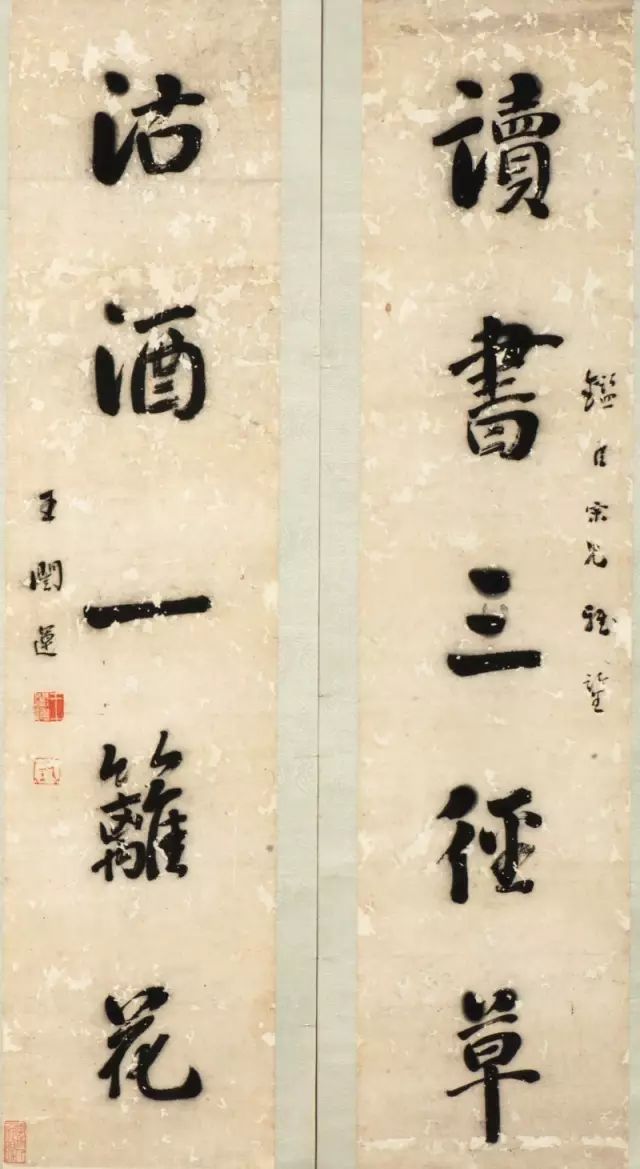 讀書三徑草
鑑 宗兄雅鑒
沽酒一籬花
王闓運